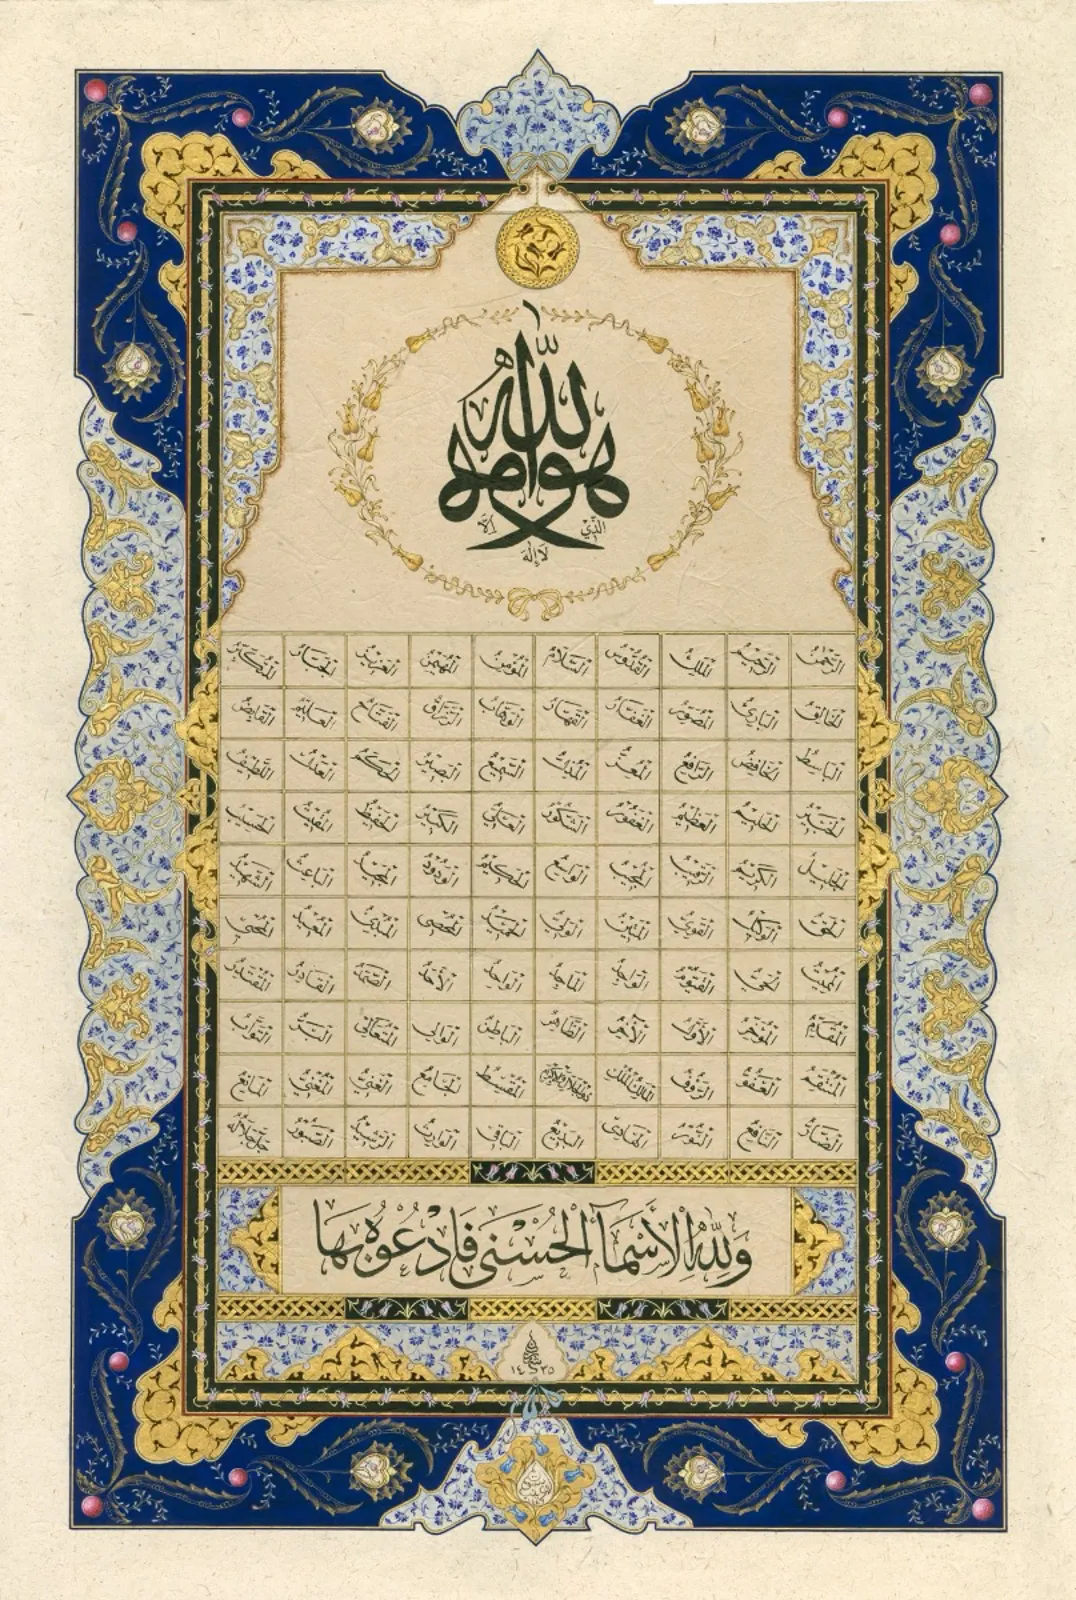 هو الله
الذي لا إله إلا هو
الرحمن الرحيم الملك القدوس السلام المؤمن المهيمن العزيز الجبار المتكبر
الخالق البارئ المصور الغفار القهار الوهاب الرزاق الفتاح العليم القابض
الباسط الخافض الرافع المعز المذل السميع البصير الحكم العدل اللطيف
الخبير الحليم العظيم الغفور الشكور العلي الكبير الحفيظ المقيت الحسيب
الجليل الكريم الرقيب المجيب الواسع الحكيم الودود المجيد الباعث الشهيد
الحق الوكيل القوي المتين الولي الحميد المحصي المبدئ المعيد المحيي
المميت الحي القيوم الواجد الماجد الواحد الأحد الصمد القادر المقتدر
المقدم المؤخر الأول الآخر الظاهر الباطن الوالي المتعالي البر التواب
المنتقم العفو الرؤوف مالك الملك ذو الجلال والإكرام المقسط الجامع الغني المغني المانع
الضار النافع النور الهادي البديع الباقي الوارث الرشيد الصبور جل جلاله
ولله الأسماء الحسنى فادعوه بها
١٤٣٥